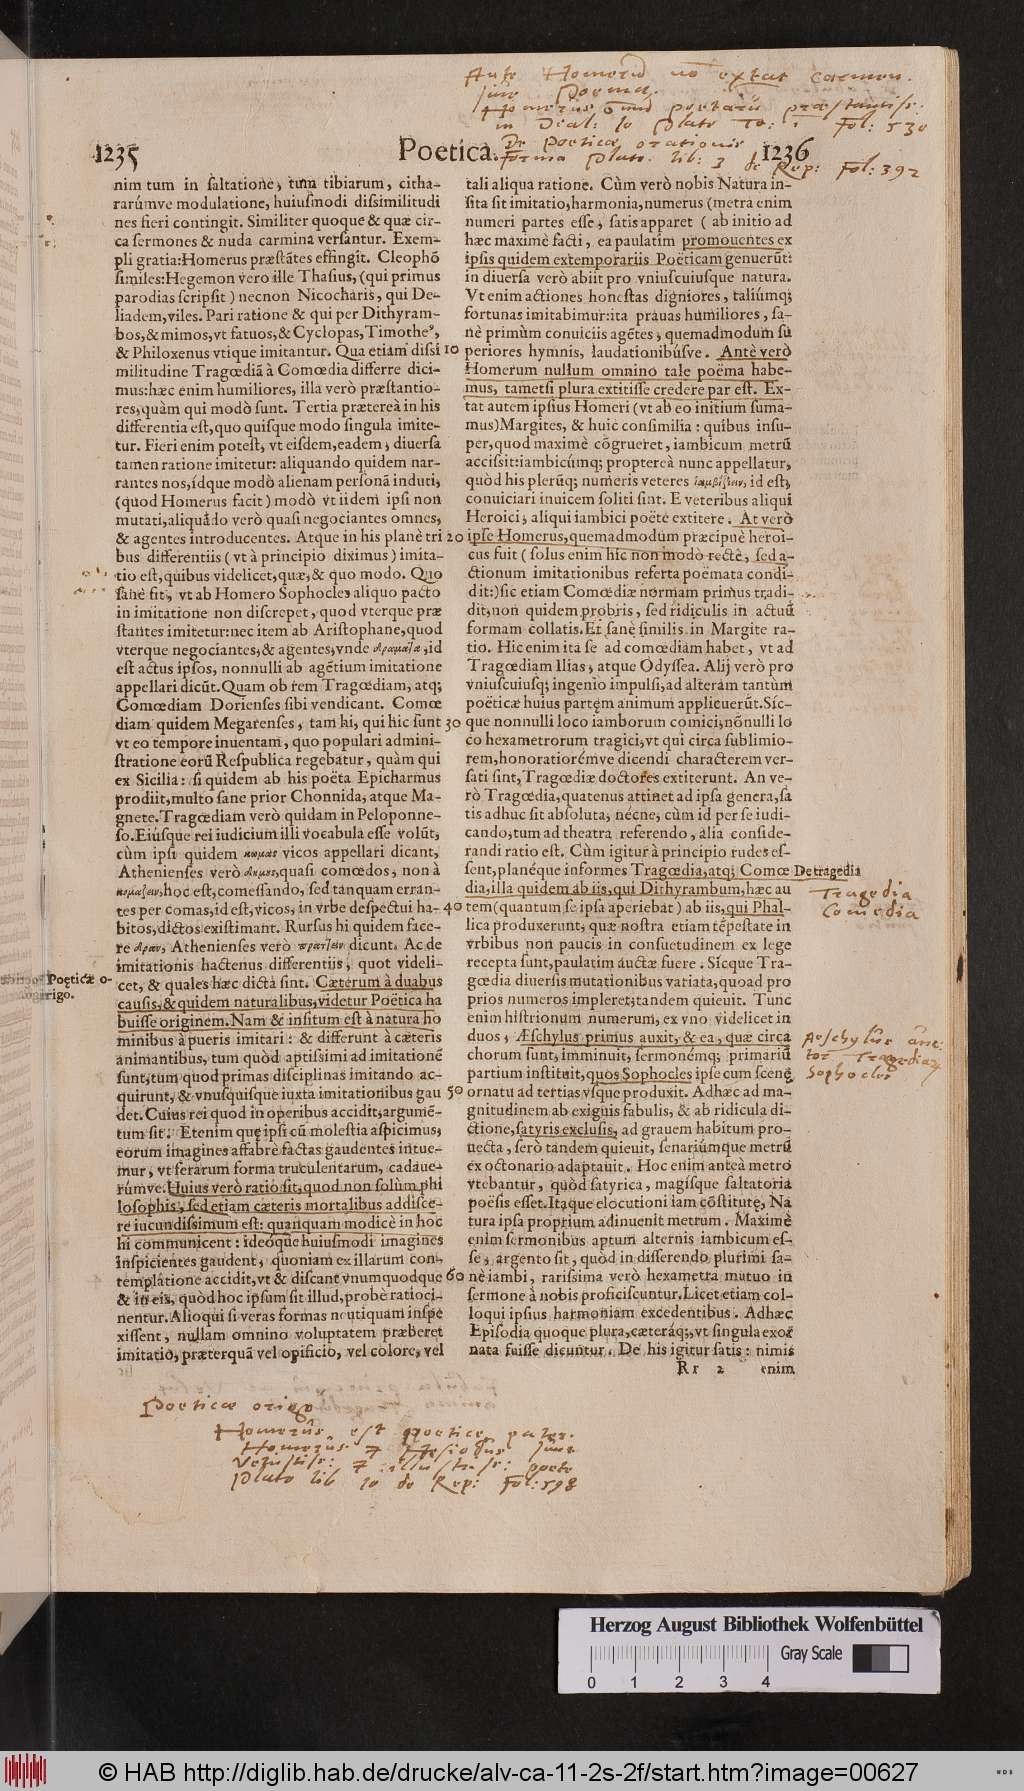 Ante Homerū nō extat carmen.
sive Poema.
Homerus omniū poetarū præstantiss:
in Dial: Io Plato To: 1 Fol: 530
De Poeticæ orationis
forma Plato. lib: 3 de Rep: Fol: 392
1235 Poetica. 1236
nim tum in saltatione, tum tibiarum, citha-
rarúmve modulatione, huiusmodi dissimilitudi
nes fieri contingit. Similiter quoque & quæ cir-
ca sermones & nuda carmina versantur. Exem-
pli gratia: Homerus præstātes effingit. Cleophō
similes: Hegemon vero ille Thasius, (qui primus
parodias scripsit) necnon Nicocharis, qui De-
liadem, viles. Pari ratione & qui per Dithyram-
bos, & mimos, vt fatuos, & Cyclopas, Timotheꝰ,
& Philoxenus vtique imitantur. Qua etiam dissi
militudine Tragœdiā à Comœdia differre dici-
mus: hæc enim humiliores, illa verò præstantio-
res, quàm qui modò sunt. Tertia prætereà in his
differentia est, quo quisque modo singula imite-
tur. Fieri enim potest, vt eisdem, eadem, diuersa
tamen ratione imitetur: aliquando quidem nar-
rantes nos, ídque modò alienam personā induti,
(quod Homerus facit) modò vt iidem ipsi non
mutati, aliquādo verò quasi negociantes omnes,
& agentes introducentes. Atque in his planè tri
bus differentiis (vt à principio diximus) imita-
tio est, quibus videlicet, quæ, & quo modo. Quo
sanè fit, vt ab Homero Sophocles aliquo pacto
in imitatione non discrepet, quod vterque præ
stantes imitetur: nec item ab Aristophane, quod
vterque negociantes, & agentes, vnde δράματα, id
est actus ipsos, nonnulli ab agētium imitatione
appellari dicūt. Quam ob rem Tragœdiam, atq;
Comœdiam Dorienses sibi vendicant. Comœ
diam quidem Megarenses, tam hi, qui hic sunt
vt eo tempore inuentam, quo populari admini-
stratione eorū Respublica regebatur, quàm qui
ex Sicilia: si quidem ab his poëta Epicharmus
prodiit, multo sane prior Chonnida, atque Ma-
gnete. Tragœdiam verò quidam in Peloponne-
so. Eiusque rei iudicium illi vocabula esse volūt,
cùm ipsi quidem κωμας vicos appellari dicant,
Athenienses verò δημης, quasi comœdos, non à
κωμαζειν, hoc est, comessando, sed tanquam erran-
tes per comas, id est, vicos, in vrbe despectui ha-
bitos, dictos existimant. Rursus hi quidem face-
re δραν, Athenienses verò πραττειν dicunt. Ac de
imitationis hactenus differentiis, quot videli-
cet, & quales hæc dicta sint. Cæterum à duabus
causis, & quidem naturalibus, videtur Poëtica ha
buisse originem. Nam & insitum est à natura ho
minibus à pueris imitari: & differunt à cæteris
animantibus, tum quòd aptissimi ad imitationē
sunt, tum quod primas disciplinas imitando ac-
quirunt, & vnusquisque iuxta imitationibus gau
det. Cuius rei quod in operibus accidit, argumē-
tum sit. Etenim quę ipsi cū molestia aspicimus,
eorum imagines affabrè factas gaudentes intue-
mur, vt ferarum forma truculentarum, cadaue-
rúmve. Huius verò ratio sit, quod non solùm phi
losophis, sed etiam cæteris mortalibus addisce-
re iucundissimum est: quanquam modicè in hoc
hi communicent: ideóque huiusmodi imagines
inspicientes gaudent, quoniam ex illarum con-
templatione accidit, vt & discant vnumquodque
& in eis, quòd hoc ipsum sit illud, probè ratioci-
nentur. Alioqui si veras formas neutiquam inspe
xissent, nullam omnino voluptatem præberet
imitatio, præterquā vel opificio, vel colore, vel
Poeticæ o-
rigo.
10
20
30
40
50
60
tali aliqua ratione. Cùm verò nobis Natura in-
sita sit imitatio, harmonia, numerus (metra enim
numeri partes esse, satis apparet (ab initio ad
hæc maximè facti, ea paulatim promouentes ex
ipsis quidem extemporariis Poëticam genuerūt:
in diuersa verò abiit pro vniuscuiusque natura.
Vt enim actiones honestas digniores, taliúmq;
fortunas imitabimur: ita prauas humiliores, sa-
nè primùm conuiciis agētes, quemadmodum su
periores hymnis, laudationibúsve. Antè verò
Homerum nullum omnino tale poëma habe-
mus, tametsi plura extitisse credere par est. Ex-
tat autem ipsius Homeri (vt ab eo initium suma-
mus) Margites, & huic consimilia: quibus insu-
per, quod maximè cōgrueret, iambicum metrū
accissit: iambicúmq; proptereà nunc appellatur,
quòd his plerūq; numeris veteres ἰαμβίζειν, id est,
conuiciari inuicem soliti sint. E veteribus aliqui
Heroici, aliqui iambici poëte extitere. At verò
ipse Homerus, quemadmodum præcipuè heroi-
cus fuit (solus enim hic non modò rectè, sed a-
ctionum imitationibus referta poëmata condi-
dit:) sic etiam Comœdiæ normam primus tradi-
dit, non quidem probris, sed ridiculis in actuū
formam collatis. Et sanè similis in Margite ra-
tio. Hic enim ita se ad comœdiam habet, vt ad
Tragœdiam Ilias, atque Odyssea. Alij verò pro
vniuscuiusq; ingenio impulsi, ad alteram tantùm
poëticæ huius partem animum applicuerūt. Síc-
que nonnulli loco iamborum comici, nōnulli lo
co hexametrorum tragici, vt qui circa sublimio-
rem, honoratiorémve dicendi characterem ver-
sati sint, Tragœdiæ doctores extiterunt. An ve-
rò Tragœdia, quatenus attinet ad ipsa genera, sa
tis adhuc sit absoluta, nécne, cùm id per se iudi-
cando, tum ad theatra referendo, alia conside-
randi ratio est. Cùm igitur à principio rudes es-
sent, planéque informes Tragœdia, atq; Comœ
dia, illa quidem ab iis, qui Dithyrambum, hæc au
tem (quantum se ipsa aperiebat) ab iis, qui Phal-
lica produxerunt, quæ nostra etiam tēpestate in
vrbibus non paucis in consuetudinem ex lege
recepta sunt, paulatim auctæ fuere. Sícque Tra-
gœdia diuersis mutationibus variata, quoad pro
prios numeros impleret, tandem quieuit. Tunc
enim histrionum numerum, ex vno videlicet in
duos, Æschylus primus auxit, & ea, quæ circa
chorum sunt, imminuit, sermonémq; primariū
partium instituit, quos Sophocles ipse cum scenę
ornatu ad tertias vsque produxit. Adhæc ad ma-
gnitudinem ab exiguis fabulis, & ab ridicula di-
ctione, satyris exclusis, ad grauem habitum pro-
uecta, serò tandem quieuit, senariúmque metrū
ex octonario adaptauit. Hoc enim anteà metro
vtebantur, quòd satyrica, magísque saltatoria
poësis esset. Itaque elocutioni iam cōstitutę, Na
tura ipsa proprium adinuenit metrum. Maximè
enim sermonibus aptum alternis iambicum es-
se, argento sit, quòd in disserendo plurimi sa-
nè iambi, rarissima verò hexametra mutuo in
sermone à nobis proficiscuntur. Licet etiam col-
loqui ipsius harmoniam excedentibus. Adhæc
Episodia quoque plura, cæteráq;, vt singula exor
nata fuisse dicuntur. De his igitur satis: nimis
Rr 2 enim
De tragedia
Tragedia
Comedia
Aeschylus auc:
tor Tragediaꝝ
Sophocles
Poeticæ origo
Homerus est poetice pater.
Homerus & Hesiodus sunt
vetustiss: & illustriss: poete
Plato lib 10 de Rep: Fol: 598
Herzog August Bibliothek Wolfenbüttel
Gray Scale
0 1 2 3 4
© HAB http://diglib.hab.de/drucke/alv-ca-11-2s-2f/start.htm?image=00627